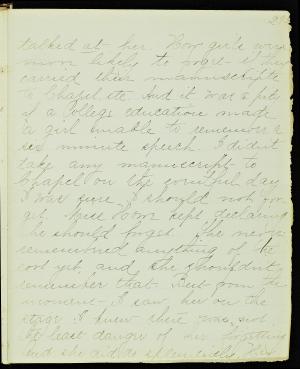 talked at her. How girls was
more likely to forget if they
carried their manuscripts
to Chapel etc And it was a pity
if a College education made
a girl unable to remember a
six minute speech. I didn't
take any manuscript to
Chapel on the eventful day
I was sure I should not for
get. Miss kept declaring
she should forget. She never
remembered anything of the
sort yet, and she shouldn't
remember that. But from the
moment I saw her on the
stage I knew there was not
the least danger of her forgetting
and she did as